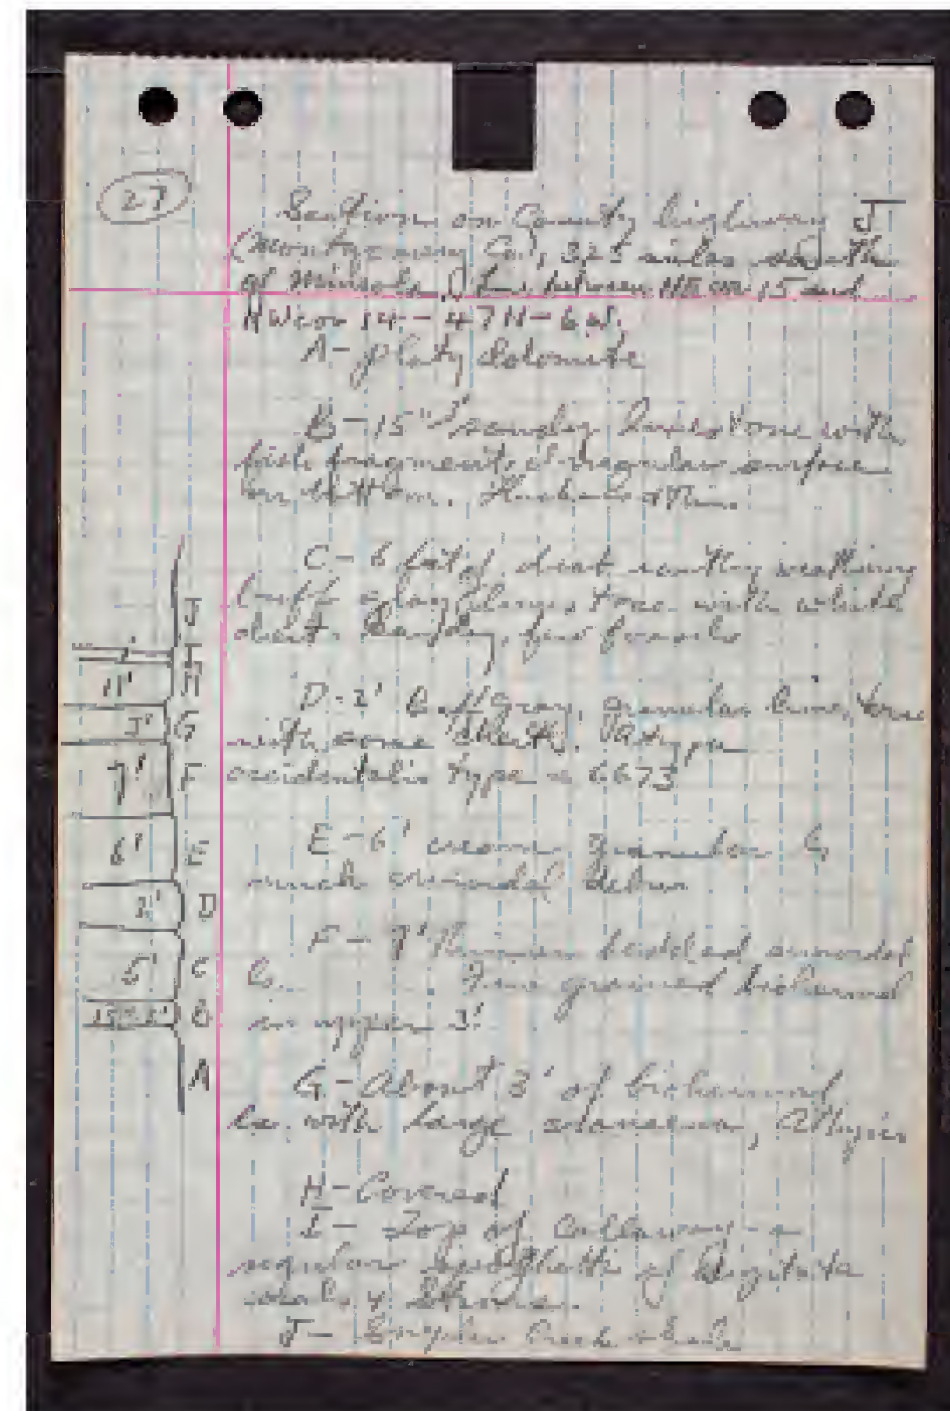 27
Section on County highway J
(Montgomery Co), 3.25 miles south
of Mineola, line between NE cor 15 and
NW cor 14-47N-6W.
A- platy dolomite
B-15"-3' sandy limestone with
fish fragments, irregular surface
on bottom.
C-6 feet of
buff gray limestone with white
chert. Sandy, few fossils
D-2' buff gray, granular limestone
with some chert. Atrypa
occidentalis type = 6673
E-6' cream granular ls
much crinoidal debris
F-7' bedded crinoidal
ls. Fine grained biohermal
in upper 3'
G-About 3' of biohermal
ls. with large Atrypas
H-Covered
I- Top of Callaway - a
regular spaghetti of digitate
corals &
J- Snyder Creek shale
J
I
11' H
3' G
7' F
6' E
2' D
6' C
15"-3' B
A